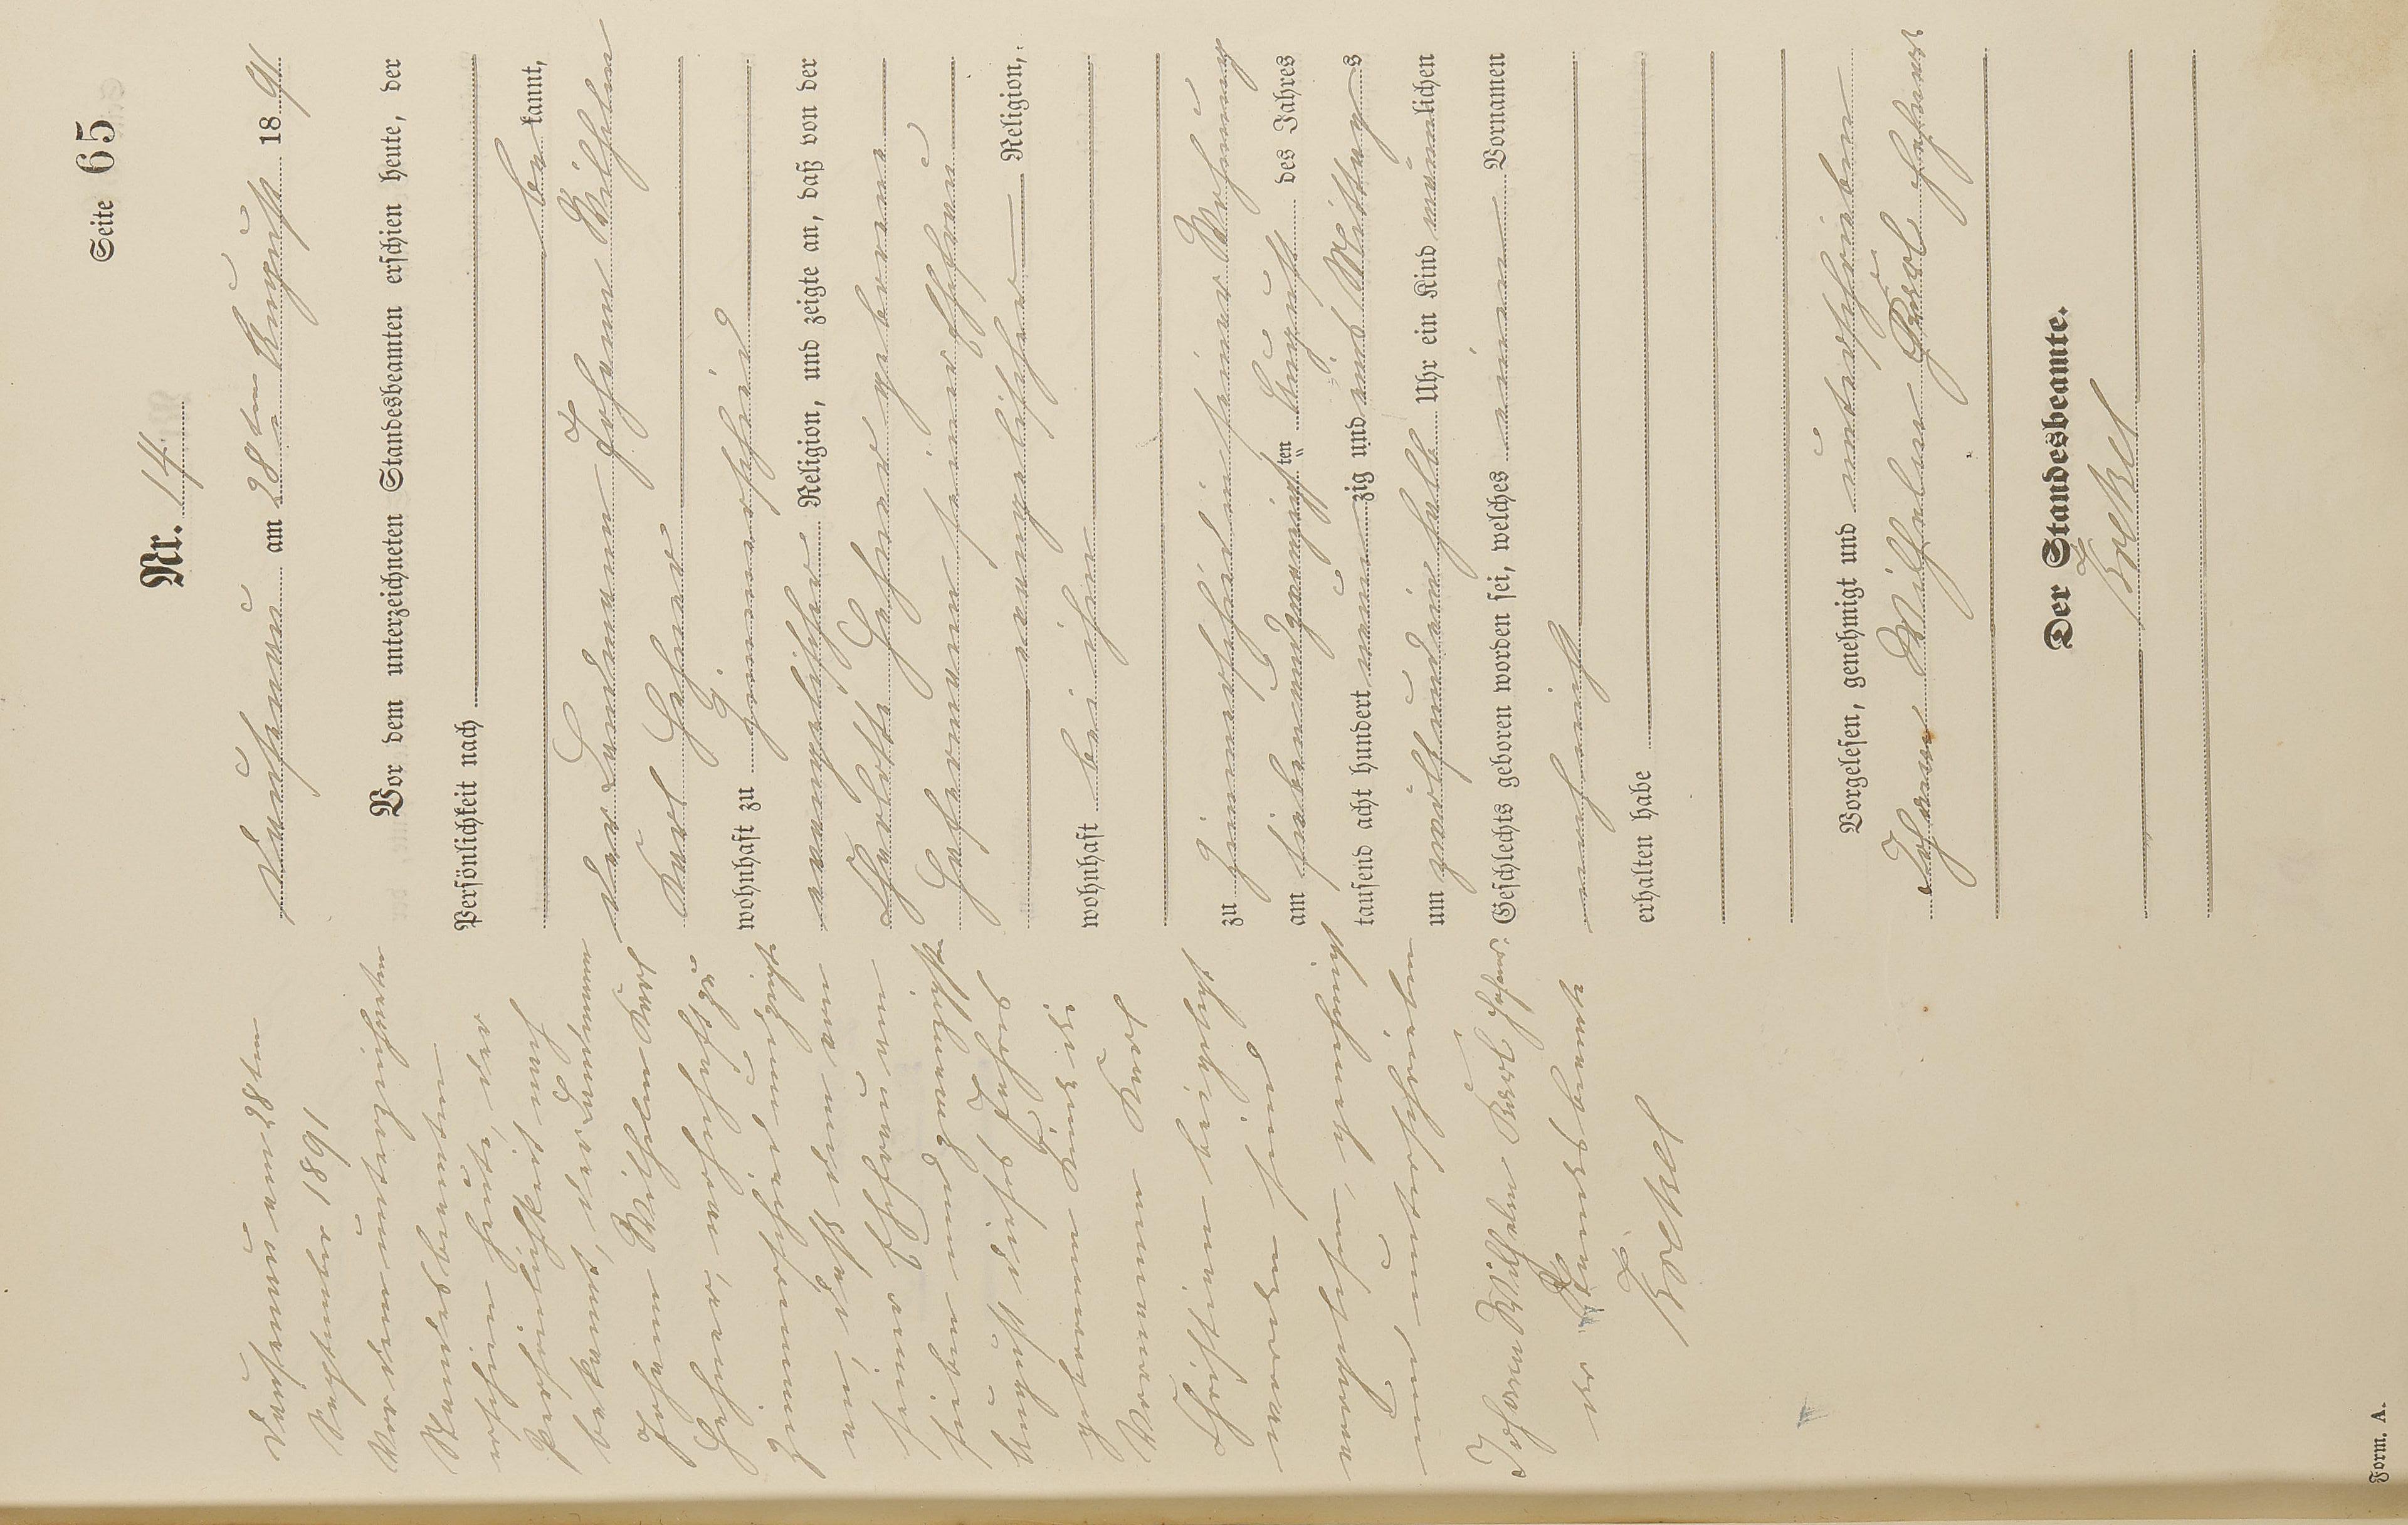 Seite 65
Nr. 14
Dausenau am 28ten August 1891
Vor dem unterzeichneten Standesbeamten erschien heute, der
Persönlichkeit nach
be kannt,
der Landmann Johann Wilhelm
Karl
wohnhaft zu
evangelischer Religion, und zeigte an, daß von der
geborene
seiner Ehefrau
evangelischer Religion,
wohnhaft bei ihm
zu in seiner Wohnung
am siebenundzwanzigsten ten August des Jahres
tausend acht hundert neunzig und eins Mittags
um zwölf und ein halb Uhr ein Kind männlichen
Geschlechts geboren worden sei, welches einen Vornamen
noch nicht
erhalten habe
Vorgelesen, genehmigt und unterschrieben
Johann Wilhelm Karl
Der Standesbeamte.
Dausenau am 28ten
September 1891
Vor dem unterzeichneten
Standesbeamten
erschien heute, der
Persönlichkeit nach
bekannt, der Landmann
Johann Wilhelm Karl
und zeigte
an, daß dem von
seiner Ehefrau am
siebenundzwanzigsten
August dieses Jahres
geborenen Kinde die
Vornamen Karl
Christian beigelegt
worden sind
vorgelesen, genehmigt
und unterschrieben
Johann Wilhelm Karl
der Standesbeamte
Form. A.